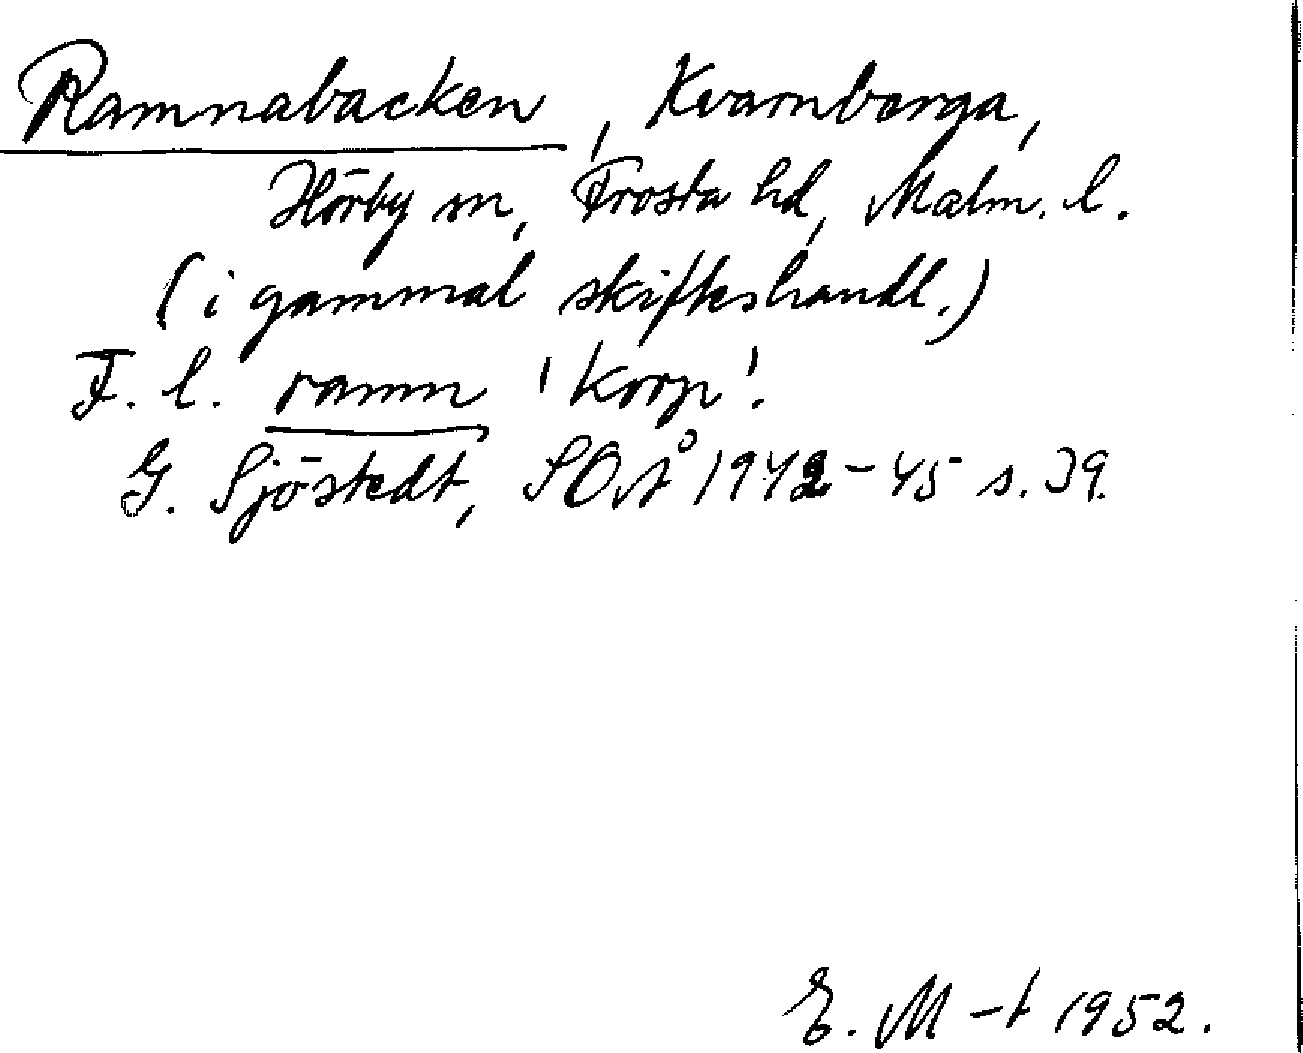 Ramnabacken, Kvarnberga,
Hörby sn, Frosta hd, Malm. l.
(i gammal skifteshandl.)
F. l. ramn 'korp'.
G. Sjöstedt, SOÅ 1942-45 s. 39.
E. M-t 1952.